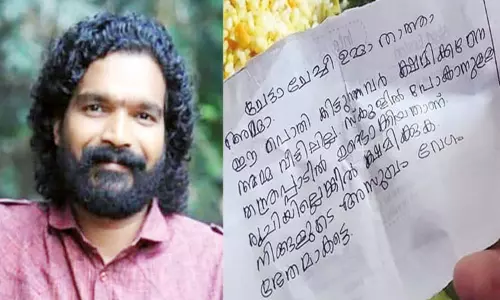 ചേട്ടാ ചേച്ചി ഉമ്മാ താത്താ
അമ്മാ.
ഈ പൊതി കിട്ടുന്നവർ ക്ഷമിക്കണേ
അമ്മ വീട്ടിലില്ല സ്കൂളിൽ പോകാനുള്ള
തന്ത്രപ്പാടിൽ ഉണ്ടാക്കിയതാണ്
രുചിയില്ലെങ്കിൽ ക്ഷമിക്കുക
നിങ്ങളുടെ അസുഖം വേഗം
ഭേദമാകട്ടെ.